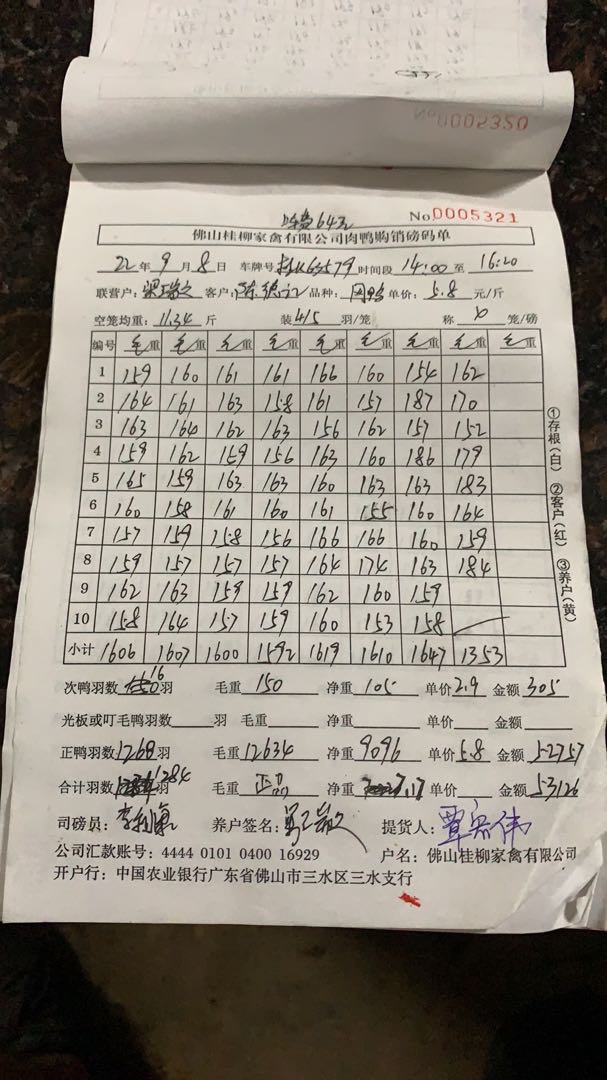 No 0005320
No 0005321
佛山桂柳家禽有限公司肉鸭购销磅码单
22年 9月 8日 车牌号 时间段 14:00 至 16:20
联营户: 客户: 品种: 单价: 5.8 元/斤
空笼均重: 11.34 斤 装 4/5 羽/笼 称 笼/磅
编号 毛重 毛重 毛重 毛重 毛重 毛重 毛重 毛重 毛重
1 159 160 161 161 166 160 154 162
2 164 161 163 158 161 157 187 170
3 163 164 162 163 156 162 157 152
4 159 162 159 156 163 160 186 179
5 165 159 163 163 160 163 163 183
6 160 158 161 160 161 155 160 164
7 157 159 158 156 166 166 160 159
8 159 157 157 157 164 174 163 184
9 162 163 159 159 162 160 159
10 158 164 157 159 160 153 158
小计 1606 1607 1600 1592 1619 1610 1647 1353
①存根(白) ②客户(红) ③养户(黄)
次鸭羽数 16 羽 毛重 150 净重 105 单价 2.9 金额 305
光板或叮毛鸭羽数 羽 毛重 净重 单价 金额
正鸭羽数 1268 羽 毛重 12634 净重 9096 单价 5.8 金额 52757
合计羽数 1284 羽 毛重 正品 净重 7.17 单价 金额 53126
司磅员: 养户签名: 提货人:
公司汇款账号: 4444 0101 0400 16929 户名: 佛山桂柳家禽有限公司
开户行: 中国农业银行广东省佛山市三水区三水支行